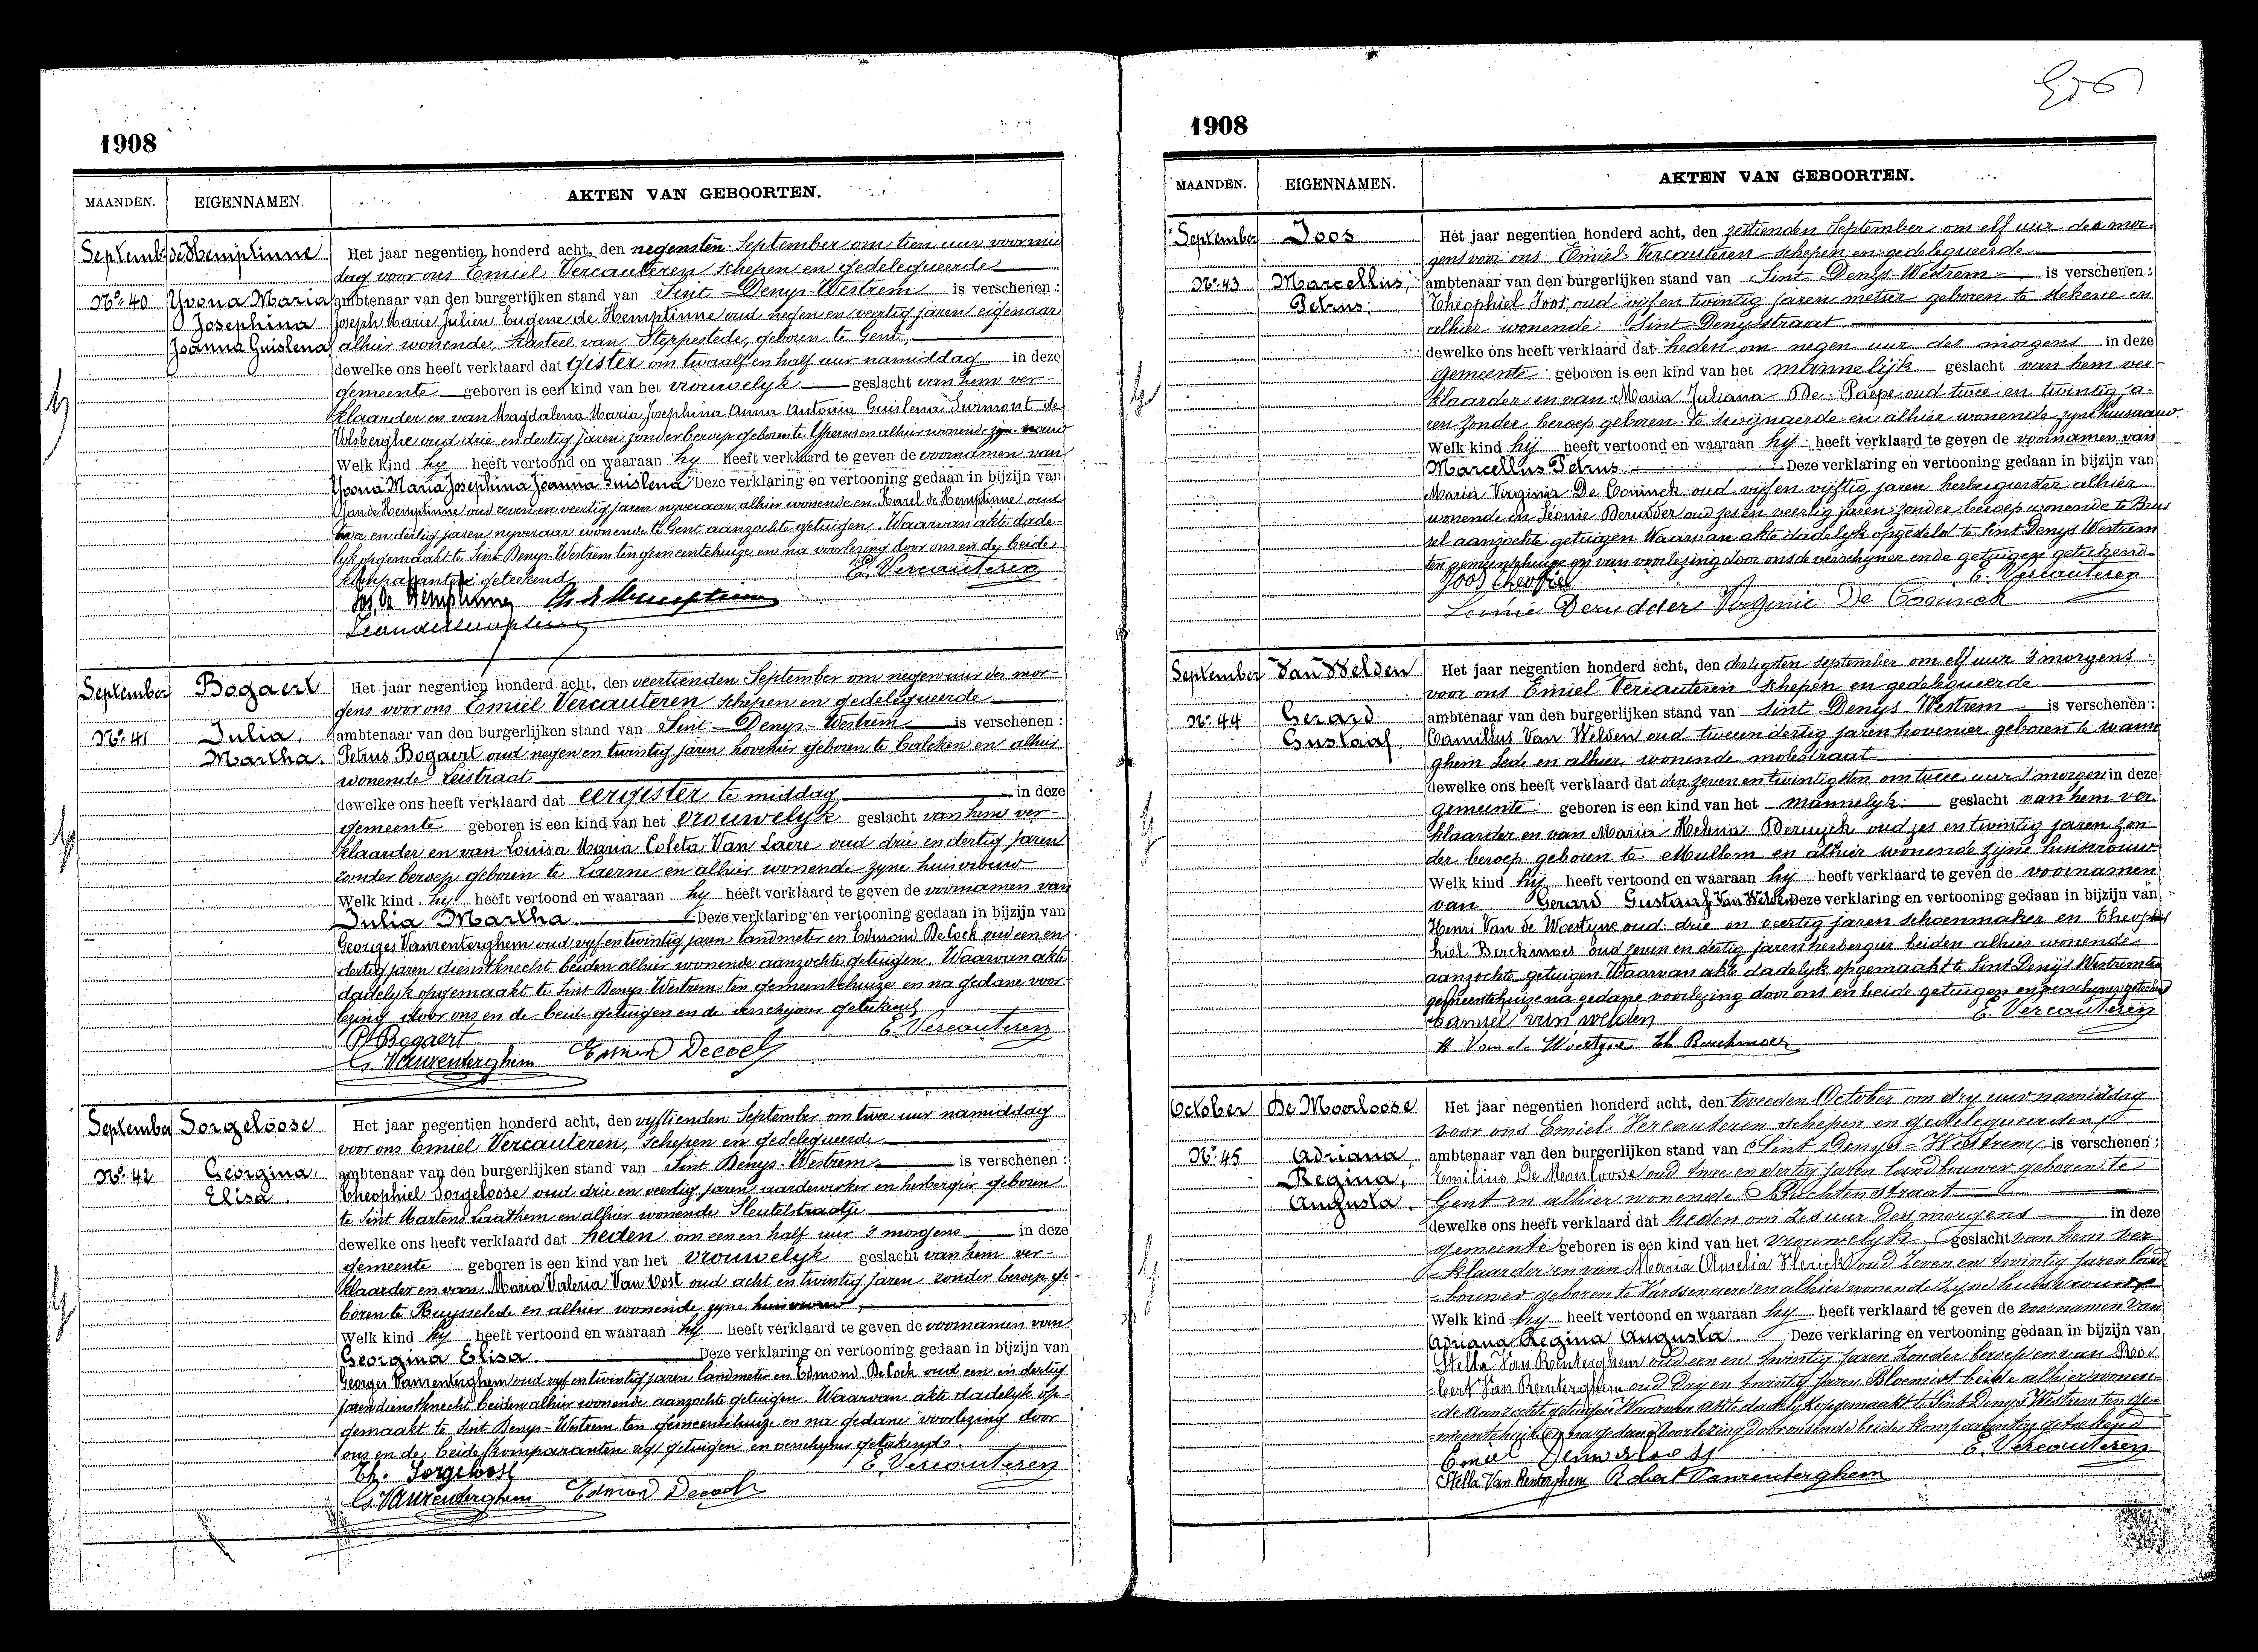 1908
MAANDEN. EIGENNAMEN. AKTEN VAN GEBOORTEN.
Septemb. de Hemptinne
No. 40 Yvona Maria
Josephina
Joanna Guislena
Het jaar negentien honderd acht, den negensten September om tien uur voormid
dag voor ons Emiel Vercauteren schepen en gedelegueerde
ambtenaar van den burgerlijken stand van Sint Denys-Westrem is verschenen :
Joseph Marie Julien Eugene de Hemptinne oud negen en veertig jaren eigenaar
alhier wonende, kasteel van Steppestede, geboren te Gent,
dewelke ons heeft verklaard dat gister om twaalf en half uur namiddag in deze
gemeente geboren is een kind van het vrouwelyk geslacht van hem ver-
klaarder en van Magdalena Maria Josephina Anna Antonia Guislena Surmont de
Volsberghe oud drie en dertig jaren zonder beroep geboren te Yperen en alhier wonende zyn vrouw
Welk kind hy heeft vertoond en waaraan hy heeft verklaard te geven de voornamen van
Yvona Maria Josephina Joanna Guislena Deze verklaring en vertooning gedaan in bijzijn van
Jan de Hemptinne oud zeven en veertig jaren nyveraar alhier wonende en Karel de Hemptinne oud
twee en dertig jaren nyveraar wonende te Gent aanzochte getuigen. Waarvan akte dade-
lyk opgemaakt te Sint Denys-Westrem ten gemeentehuize en na voorlezing door ons en de beide
komparanten geteekend
E. Vercauteren
Jos. de Hemptinne Ch de Hemptinne
September Bogaert
No. 41 Julia,
Martha.
Het jaar negentien honderd acht, den veertienden September om negen uur des mor-
gens voor ons Emiel Vercauteren schepen en gedelegueerde
ambtenaar van den burgerlijken stand van Sint Denys-Westrem is verschenen :
Petrus Bogaert oud negen en twintig jaren hovenier geboren te Calcken en alhier
wonende Leistraat
dewelke ons heeft verklaard dat eergister te middag in deze
gemeente geboren is een kind van het vrouwelyk geslacht van hem ver-
klaarder en van Louisa Maria Coleta Van Laere oud drie en dertig jaren
zonder beroep geboren te Laerne en alhier wonende zyne huisvrouw
Welk kind hy heeft vertoond en waaraan hy heeft verklaard te geven de voornamen van
Julia Martha. Deze verklaring en vertooning gedaan in bijzijn van
Georges Vanrenterghem oud vyf en twintig jaren landmeter en Edmond De Cock oud een en
dertig jaren dienstknecht beiden alhier wonende aanzochte getuigen. Waarvan akte
dadelyk opgemaakt te Sint Denys-Westrem ten gemeentehuize en na gedane voor
lezing door ons en de beide getuigen en de verschyner geteekend
P. Bogaert E. Vercauteren
G. Vanrenterghem Edmond Decock
September Sorgeloose
No. 42 Georgina,
Elisa.
Het jaar negentien honderd acht, den vyftienden September om twee uur namiddag
voor ons Emiel Vercauteren, schepen en gedelegueerde
ambtenaar van den burgerlijken stand van Sint Denys-Westrem is verschenen :
Theophiel Sorgeloose oud drie en veertig jaren aardewerker en herbergier geboren
te Sint Martens Laathem en alhier wonende Sleutelstraatje
dewelke ons heeft verklaard dat heden om een en half uur 's morgens in deze
gemeente geboren is een kind van het vrouwelyk geslacht van hem ver-
klaarder en van Maria Valeria Van Oost oud acht en twintig jaren zonder beroep ge-
boren te Ruysselede en alhier wonende zyne huisvrouw
Welk kind hy heeft vertoond en waaraan hy heeft verklaard te geven de voornamen van
Georgina Elisa. Deze verklaring en vertooning gedaan in bijzijn van
Georges Vanrenterghem oud vyf en twintig jaren landmeter en Edmond De Cock oud een en dertig
jaren dienstknecht beiden alhier wonende aanzochte getuigen. Waarvan akte dadelyk op-
gemaakt te Sint Denys-Westrem ten gemeentehuize en na gedane voorlezing door
ons en de beide komparanten als getuigen en verschyner geteekend.
Th. Sorgeloose E. Vercauteren
G. Vanrenterghem Edmond Decock
1908
MAANDEN. EIGENNAMEN. AKTEN VAN GEBOORTEN.
September Joos
No. 43 Marcellus
Petrus.
Het jaar negentien honderd acht, den zestienden September om elf uur des mor
gens voor ons Emiel Vercauteren schepen en gedelegueerde
ambtenaar van den burgerlijken stand van Sint Denys-Westrem is verschenen :
Théophiel Joos, oud vijf en twintig jaren metser geboren te Stekene en
alhier wonende Sint-Denysstraat
dewelke ons heeft verklaard dat heden om negen uur des morgens in deze
gemeente geboren is een kind van het mannelijk geslacht van hem ver
klaarder en van Maria Juliana De Paepe oud twee en twintig ja-
ren zonder beroep geboren te Swijnaerde en alhier wonende zyne huisvrouw
Welk kind hij heeft vertoond en waaraan hij heeft verklaard te geven de voornamen van
Marcellus Petrus. Deze verklaring en vertooning gedaan in bijzijn van
Maria Virginia De Coninck oud vijf en vijftig jaren herbergierster alhier
wonende en Leonie Derudder oud zes en veertig jaren zonder beroep wonende te Brus
sel aanzochte getuigen Waarvan akte dadelyk opgesteld te Sint Denys Westrem
ten gemeentehuize en van voorlezing door ons de verschyner en de getuigen geteekend
Joos Theofiel E. Vercauteren
Leonie Derudder Virginie De Coninck
September Van Welden
No. 44 Gerard
Gustaaf
Het jaar negentien honderd acht, den dertigsten september om elf uur 's morgens
voor ons Emiel Vercauteren schepen en gedelegueerde
ambtenaar van den burgerlijken stand van Sint Denys Westrem is verschenen :
Camillus Van Welden oud twee en dertig jaren hovenier geboren te wanne
ghem Lede en alhier wonende molestraat
dewelke ons heeft verklaard dat den zeven en twintigsten om twee uur 's morgen in deze
gemeente geboren is een kind van het mannelyk geslacht van hem ver
klaarder en van Maria Helena Deruyck oud zes en twintig jaren zon
der beroep geboren te Mullem en alhier wonende zyne huisvrouw
Welk kind hij heeft vertoond en waaraan hij heeft verklaard te geven de voornamen
van Gerard Gustaaf Van Welden Deze verklaring en vertooning gedaan in bijzijn van
Henri Van de Woestyne oud drie en veertig jaren schoenmaker en Theoph
hiel Berckmoes oud zeven en dertig jaren herbergier beiden alhier wonende
aanzochte getuigen Waarvan akte dadelyk opgemaakt te Sint Denijs Westrem ten
gemeentehuize na gedane voorlezing door ons en beide getuigen en verschyner geteekend
Camiel van welden E. Vercauteren
H. Van de Woestyne Th Berckmoes
October De Moerloose
No. 45 Adriana,
Regina,
Augusta.
Het jaar negentien honderd acht, den tweeden October om dry uur namiddag
voor ons Emiel Vercauteren schepen en gedelegueerden
ambtenaar van den burgerlijken stand van Sint Denys-Westrem is verschenen :
Emilius De Moerloose oud twee en dertig jaren landbouwer geboren te
Gent en alhier wonende Buchtenstraat
dewelke ons heeft verklaard dat heden om zes uur des morgens in deze
gemeente geboren is een kind van het vrouwelyk geslacht van hem ver
klaarder en van Maria Amelia Vlerick oud zeven en twintig jaren land
bouwer geboren te Varssenaere en alhier wonende zyne huisvrouw
Welk kind hy heeft vertoond en waaraan hy heeft verklaard te geven de voornamen van
Adriana Regina Augusta. Deze verklaring en vertooning gedaan in bijzijn van
Stella Van Renterghem oud een en twintig jaren zonder beroep en van Ro-
bert Van Renterghem oud dry en twintig jaren Bloemist beide alhier wonen-
de aanzochte getuigen Waarvan akte dadelyk opgemaakt te Sint Denys Westrem ten ge-
meentehuize en na gedane voorlezing door ons en de beide komparanten geteekend
Emiel Demoerloose E. Vercauteren
Stella Van Renterghem Robert Vanrenterghem